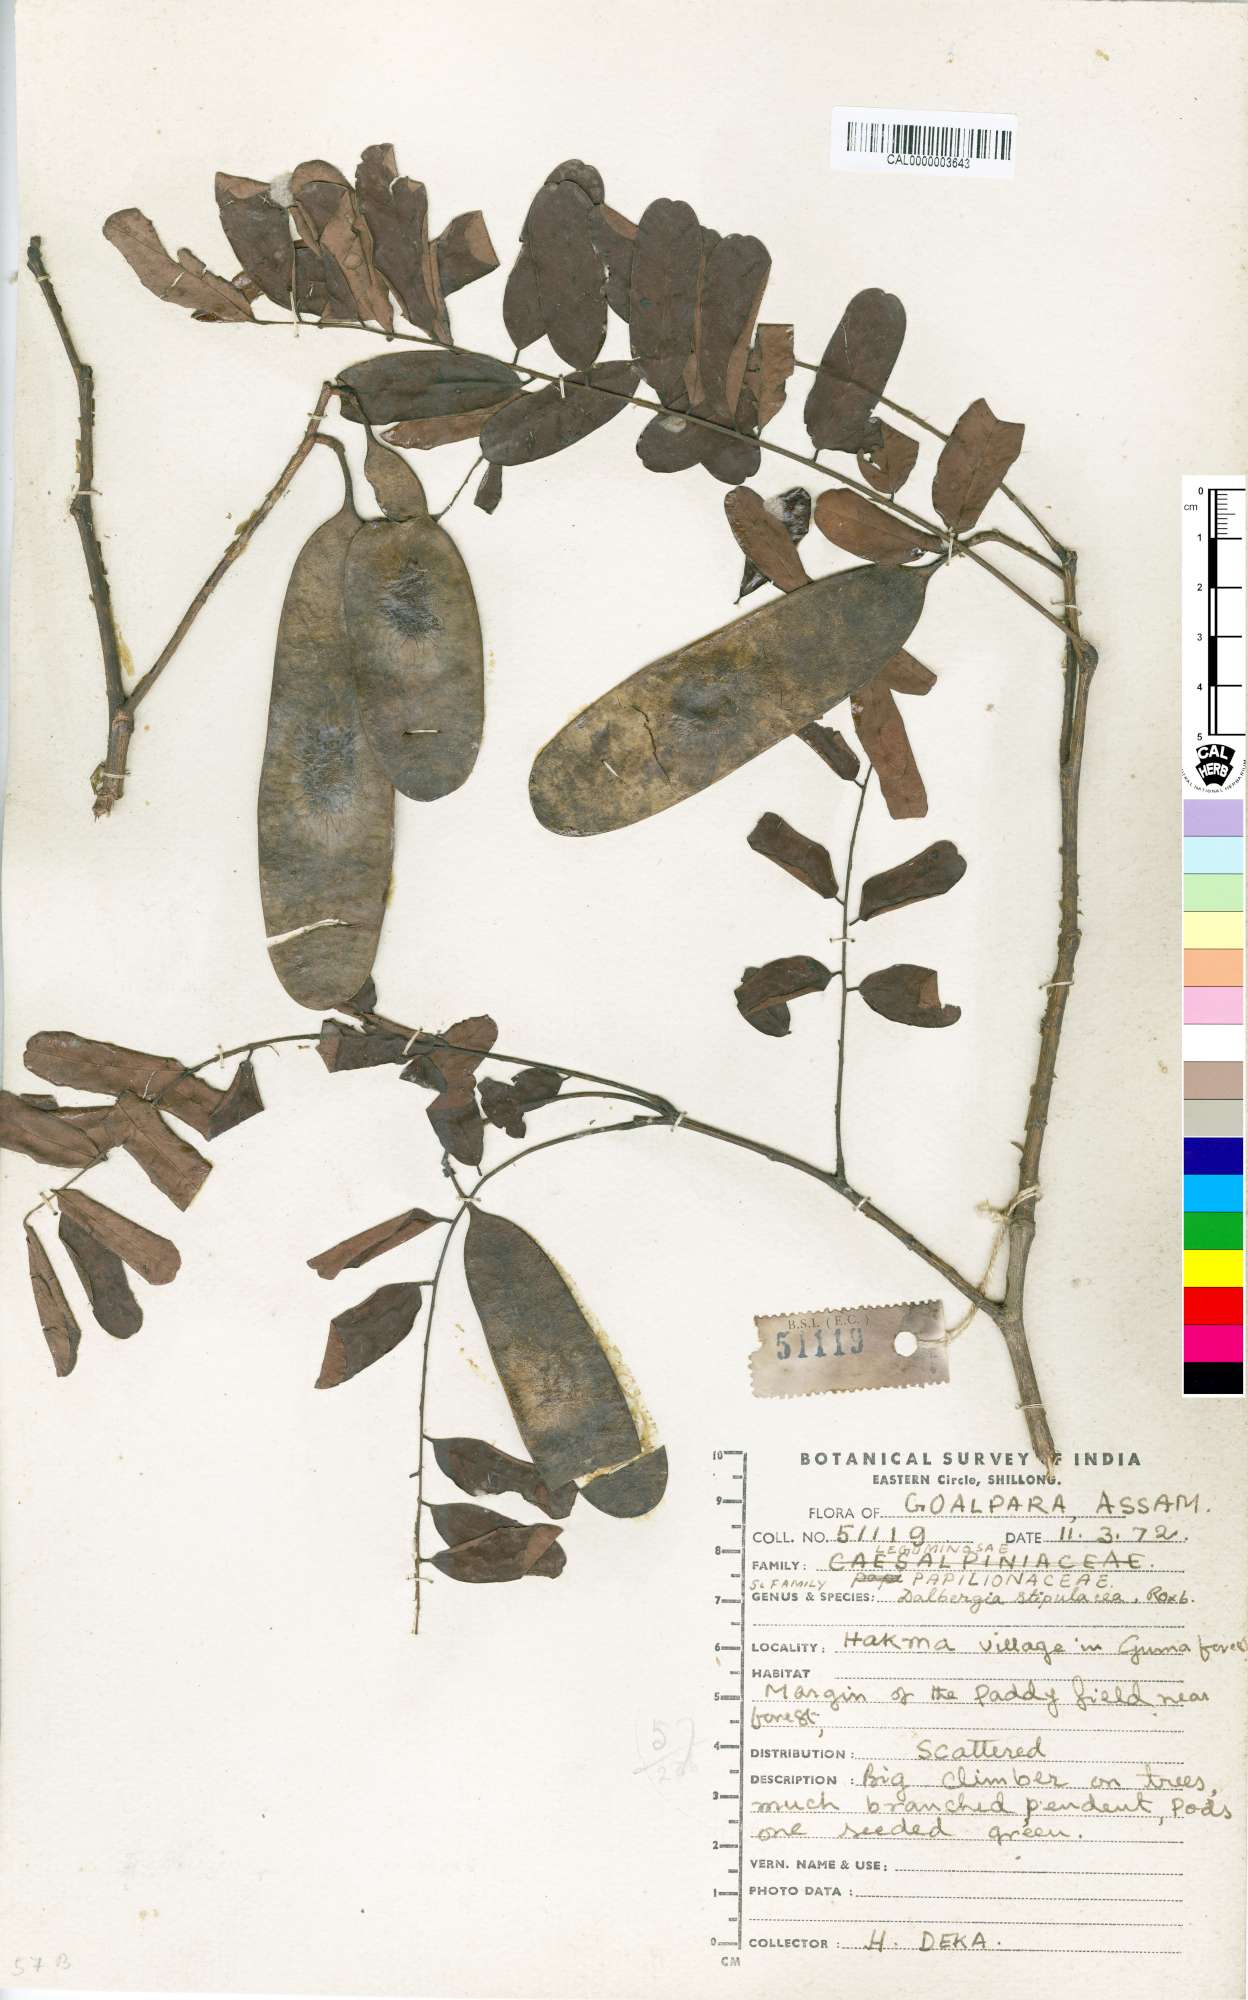 CAL0000003643
0
cm
1
2
3
4
5
CAL
HERB
CENTRAL NATIONAL HERBARIUM
B.S.I. (E.C.)
51119
BOTANICAL SURVEY OF INDIA
EASTERN Circle, SHILLONG.
FLORA OF GOALPARA, ASSAM.
COLL. NO. 51119 DATE 11.3.72.
LEGUMINOSAE
FAMILY: CAESALPINIACEAE.
S. FAMILY Pap PAPILIONACEAE
GENUS & SPECIES: Dalbergia stipulacea, Roxb.
LOCALITY: Hakma village in Guma forest
HABITAT
Margin of the paddy field near
forest,
DISTRIBUTION: Scattered
DESCRIPTION: Big climber on trees,
much branched, pendent, Pods
one seeded green.
VERN. NAME & USE:
PHOTO DATA:
COLLECTOR: H. DEKA.
10
9
8
7
6
5
4
3
2
1
0
CM
57 B